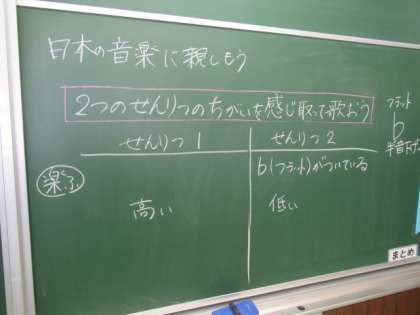 日本の音楽に親しもう
2つのせんりつのちがいを感じ取って歌おう
せんりつ 1
せんりつ 2
楽ふ
♭(フラット)がついている
高い
低い
フラット
♭
半音下げ
まとめ